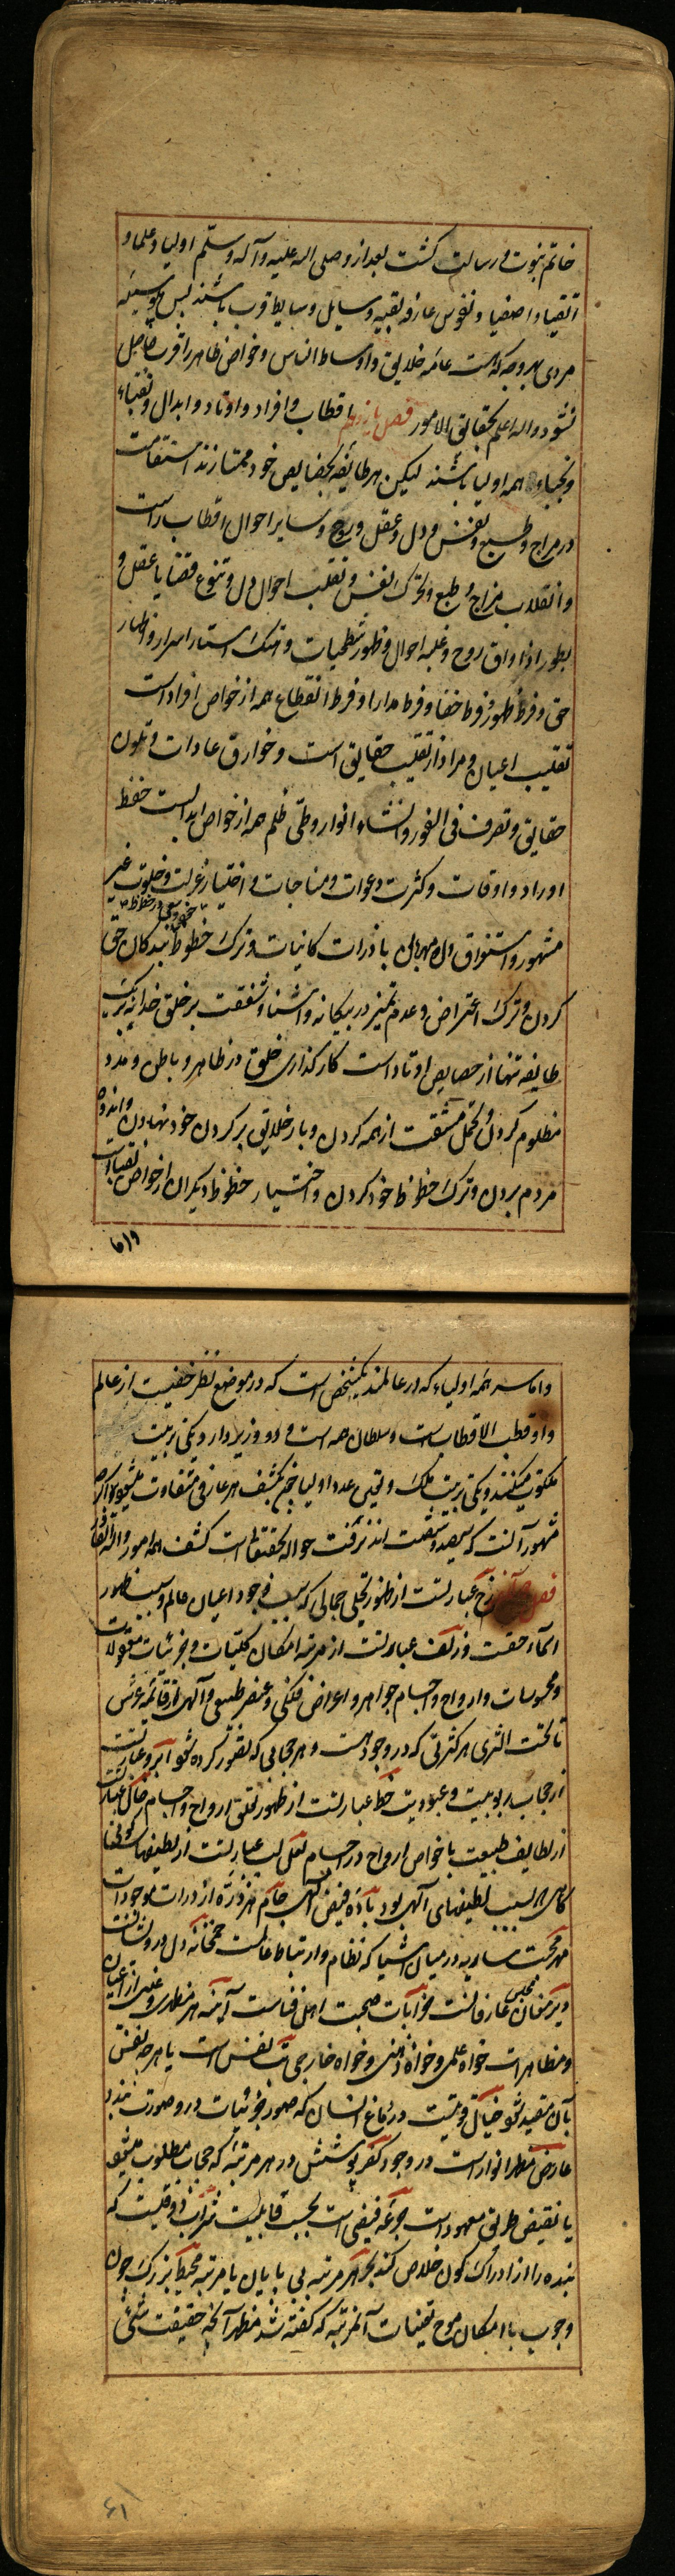 خاتم نبوت و رسالت گشت بعد از و صلی الله علیه و آله و سلّم اولیا و علما و
اتقیا و اصفیا و نفوس عارفه بقیه وسایل و وسایط قرب باشند پس بوسیله
مردی بهر وجه که است عامه خلایق و اوساط الناس و خواص ظاهر را قرب حاصل
نشود والله اعلم بحقایق الامور فصل یازدهم اقطاب و افراد و اوتاد و ابدال و نقباء
و نجباء همه اولیا باشند لیکن هر طایفه بخصایص خود ممتازند استقامت
در مزاج و طبع و نفس و دل و عقل و روح و سایر احوال اقطاب راست
و انقلاب مزاج و طبع و تحرک نفس و تقلب احوال دل و تنوع قضایا عقل و
بطور اذواق روح و غلبه احوال و ظهور شطحیات و هتک استار اسرار و اظهار
حق و فرط ظهور و فرط خفا و فرط مدارا و فرط انقطاع همه از خواص افراد است
تقلیب اعیان و مراد از تقلیب حقایق است و خوارق عادات و تلون
حقایق و تصرف فی الفور و انشاء انوار و طی ظلم همه از خواص ابدالست حفظ
اوراد و اوقات و کثرت دعوات و مناجات و اختیار عزلت و خلوت غیر
مشهور و استغراق و له مهربانی با ذرات کاینات و ترک حظوظ بندکان حق
کردن و ترک اعتراض و عدم تمیز در بیکانه و آشنا و شفقت بر خلق خدا
طایفه تنها از خصایص اوتاد است کارکذاری خلق در ظاهر و باطن و مدد
مظلوم کردن و تحمل مشقت از همه کردن و بار خلایق بر کردن خود نهادن و اندوه
مردم بردن و ترک حظوظ خود کردن و اختیار حظوظ دیکران از خواص نقبا است
و اما سر همه اولیاء که در عالمند یک شخص است که در موضع نظر حقیست از عالم
و او قطب الاقطاب است و سلطان همه است و دو وزیر دارد یکی تربیت
ملکوت میکند و یکی تربیت ملک و تعین عدد اولیا خم بکشف هر عارفی متفاوت میشود اما
مشهور آنست که سیصد و شصت اند نزفت حواله بتحقیقات کشف همه امور و الله
فصل رخ عبارتست از ظهور تجلی جمالی که سبب وجود اعیان عالم و سبب ظهور
اسماء حقست و زلف عبارتست از مرتبه امکان کلیات و جزئیات معقولات
و محسوسات و ارواح و اجسام جواهر و اعراض فلکی و عنصر طبیعی و آلهی از قائمه عرش
تا تحت الثری هر کثرتی که در وجود است و هر حجابی که تصور کرده شود ابرو عبارتست
از حجاب ربوبیت و عبودیت خط عبارتست از ظهور تعلق ارواح و اجسام خال عبارتست
از لطایف طبیعت با خواص ارواح در اجسام لعل لب عبارتست از لطیفهای
که سبب لطیفهای آلهی بود باده فیض آلهی جام هر ذره از ذرات موجودات
مهر محبت ساریه در میان اشیا که نظام و ارتباط عالمست خمخانه دل درویشانست
دیر مغان مجلس عارفانست خرابات صحبت اهل فناست آینه هر مظهری و عینی از اعیان
و مظاهر است خواه علمی و خواه ذهنی و خواه خارجی بت نفس است یا هر چه نفس
بآن مقید شود خیال قوتیست در دماغ انسان که صور جزئیات در و صورت بندد
عارض مظهر انوار است در وجود کفر پوشش در هر مرتبه که حجاب مطلوب میشود
یا نقیض طریق معهود است جرعه فیضی است بحسب قابلیت شراب ذوقیست که
بنده را از ادراک کون خلاص کند بحر هر مرتبه بی پایان یا مرتبه محیط بزرک چون
وجوب با امکان موج تعینات آن مرتبه که کفته شد مظهر آنچه حقیقت شئی
۶۱